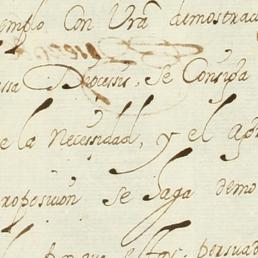 emplo Con Vrã demostrac
ssa Diocesis, se Consiga
e la necessidad, y el ag
roposicion se haga demo
persuad